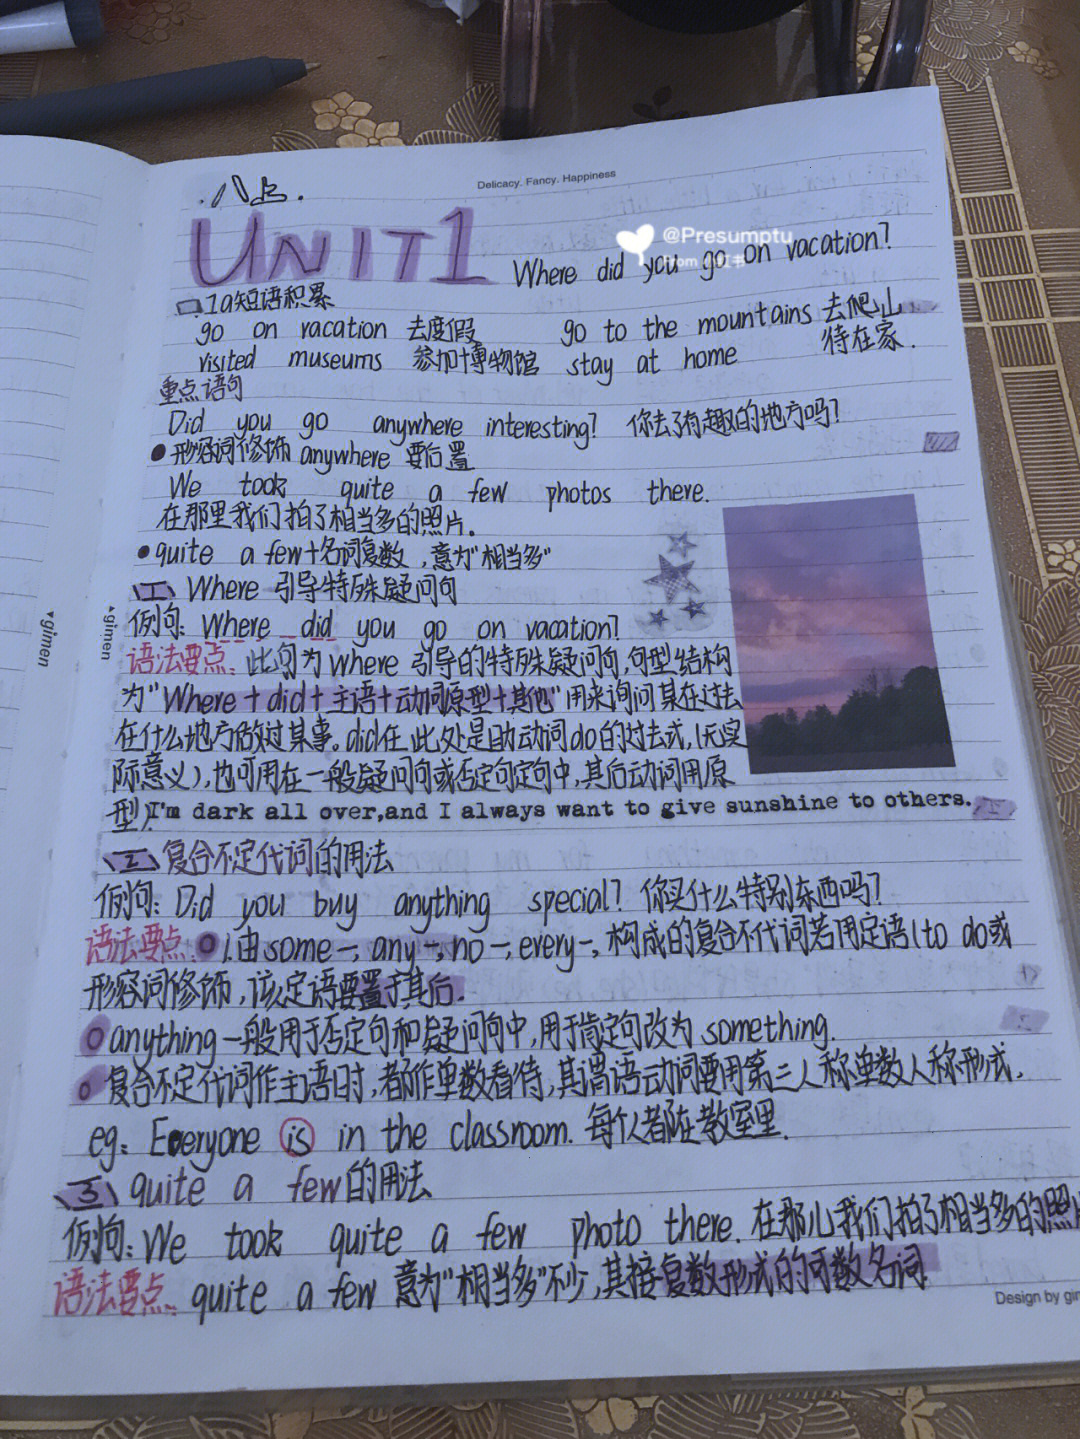 八上.
Delicacy. Fancy. Happiness
UNIT1 Where did you go on vacation?
@Presumptu
From 小红书
1a短语积累
go on vacation 去度假 go to the mountains 去爬山
visited museums 参加博物馆 stay at home 待在家.
重点语句
Did you go anywhere interesting? 你去了有趣的地方吗?
形容词修饰 anywhere 要后置
We took quite a few photos there.
在那里我们拍了相当多的照片.
quite a few+名词复数,意为"相当多"
1 Where 引导特殊疑问句
例句: Where did you go on vacation?
语法要点: 此句为 where 引导的特殊疑问句,句型结构
为"Where+did+主语+动词原型+其他"用来询问某在过去
在什么地方做过某事。did在此处是助动词do的过去式,(无实
际意义),也可用在一般疑问句或否定句定句中,其后动词用原
型).
I'm dark all over,and I always want to give sunshine to others.
2 复合不定代词的用法
例句: Did you buy anything special? 你买什么特别东西吗?
语法要点: 1.由some-, any-, no-, every-, 构成的复合不代词若用定语(to do或
形容词修饰,该定语要置于其后.
anything一般用于否定句和疑问句中,用于肯定句改为 something.
复合不定代词作主语时,都作单数看待,其谓语动词要用第三人称单数人称形式.
eg: Everyone is in the classroom. 每个人都在教室里.
3 quite a few的用法
例句: We took quite a few photo there. 在那儿我们拍了相当多的照片
语法要点: quite a few 意为"相当多"不少,其接复数形式的可数名词
gimen
gimen
Design by gi